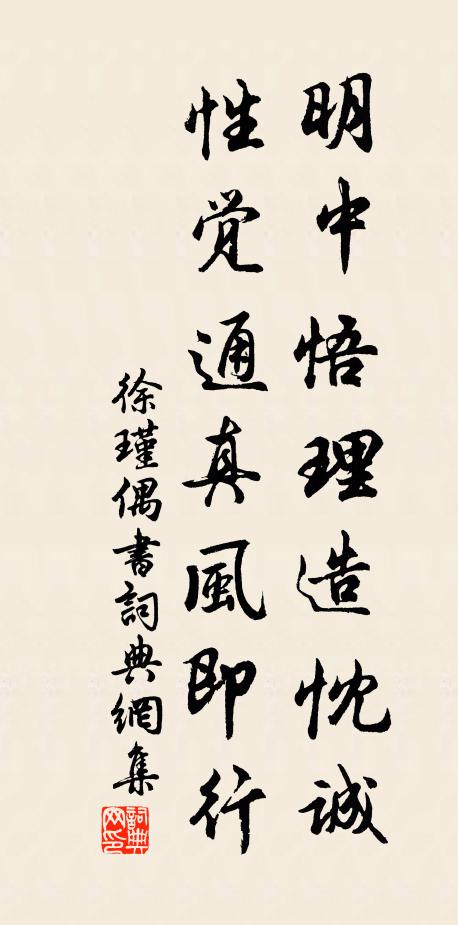 明中悟理造忱誠
性觉通真風即行
徐瑾偶書詞典網集
詞典网印